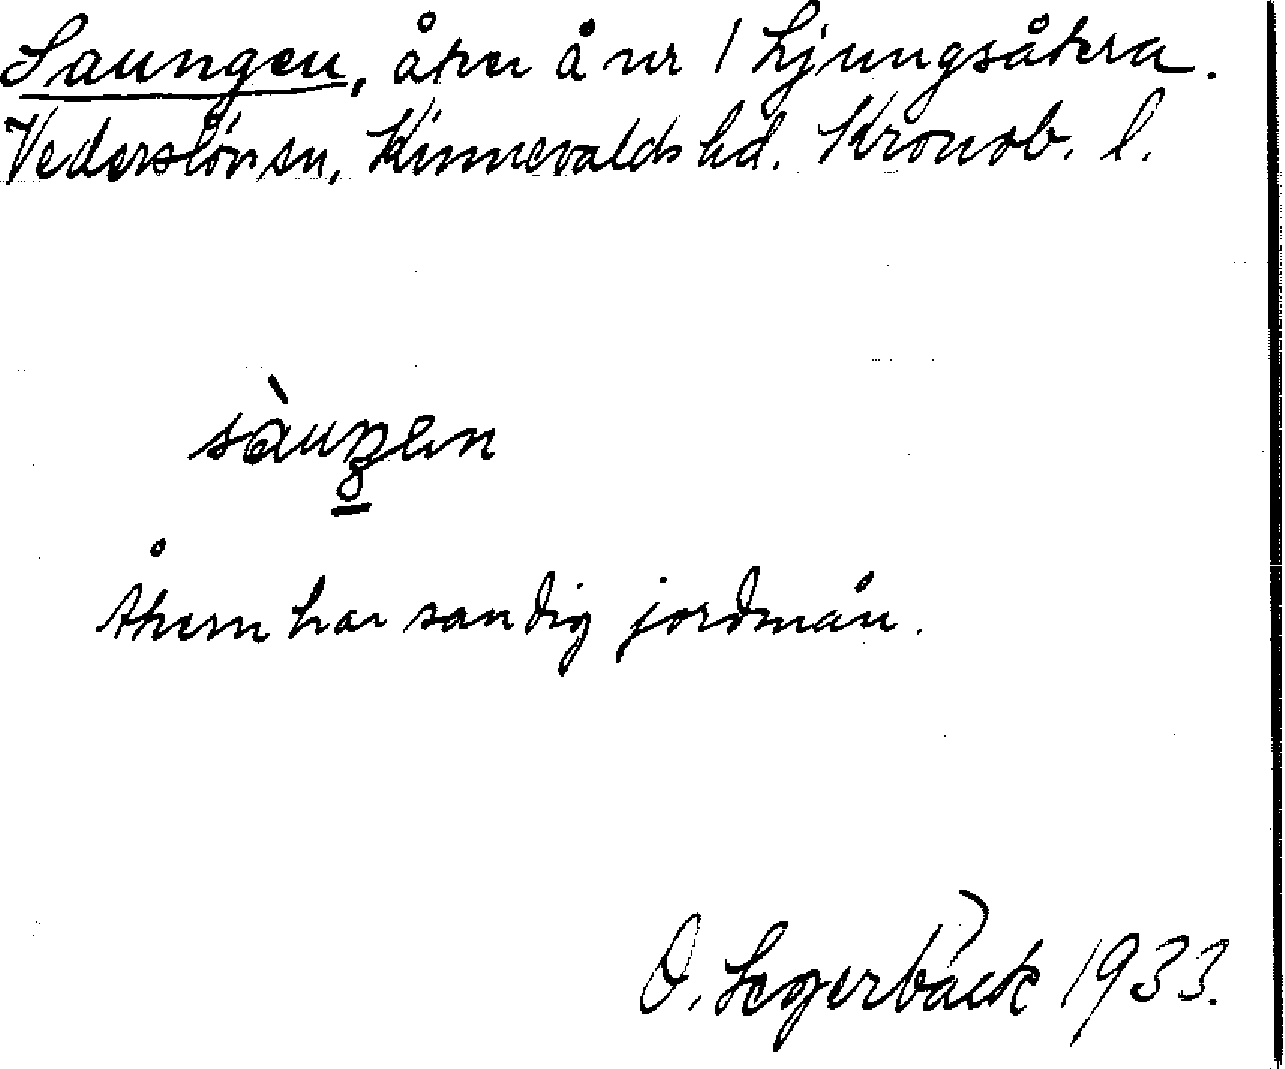 Saungen, åker å nr 1 Ljungsåkra.
Vederslöv sn, Kinnevalds hd. Kronob. l.
sàuŋen
Åkern har sandig jordmån.
O. Segerbäck 1933.